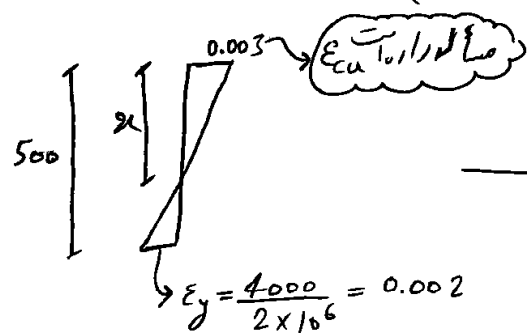 0.003
ε_cu
500
x
ε_y = 4000 / 2 × 10^6 = 0.002